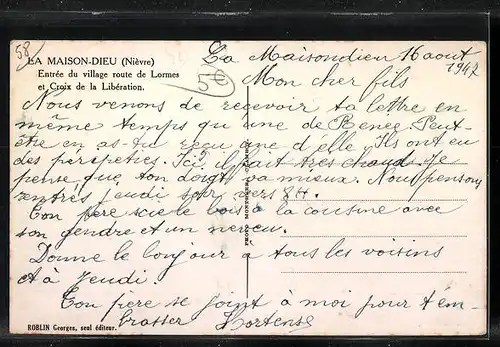 58
LA MAISON-DIEU (Nièvre)
Entrée du village route de Lormes
et Croix de la Libération.
5€
La Maisondieu 16 aout
1947
Mon cher fils
Nous venons de recevoir ta lettre en
même temps qu'une de Benée. Peut-
être en as-tu reçu une d'elle. Ils ont eu
des péripéties. Ici il fait très chaud. Je
pense que ton doigt va mieux. Nous pensons
rentrés jeudi soir vers 8H.
Ton père scie le bois à la cousine avec
son gendre et un neveu.
Donne le bonjour à tous les voisins
et à jeudi.
Ton père se joint à moi pour t'em-
brasser Hortense
ROBLIN Georges, seul éditeur.